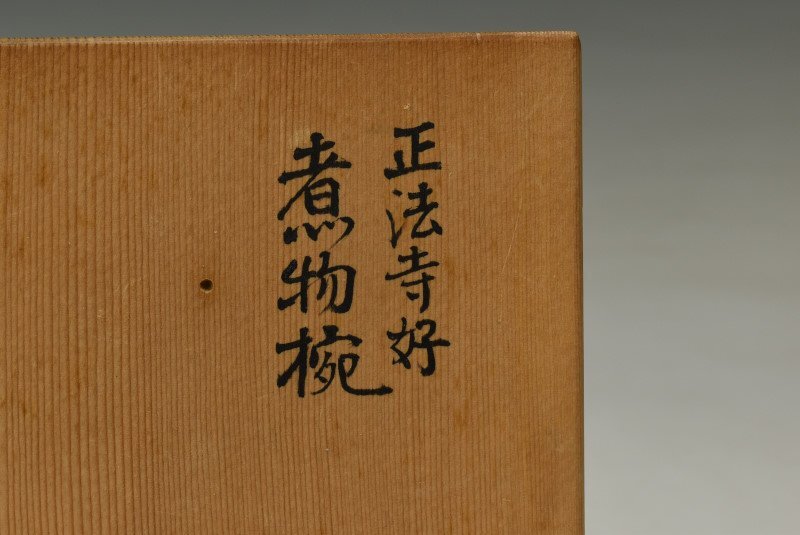 正法寺好
煮物椀